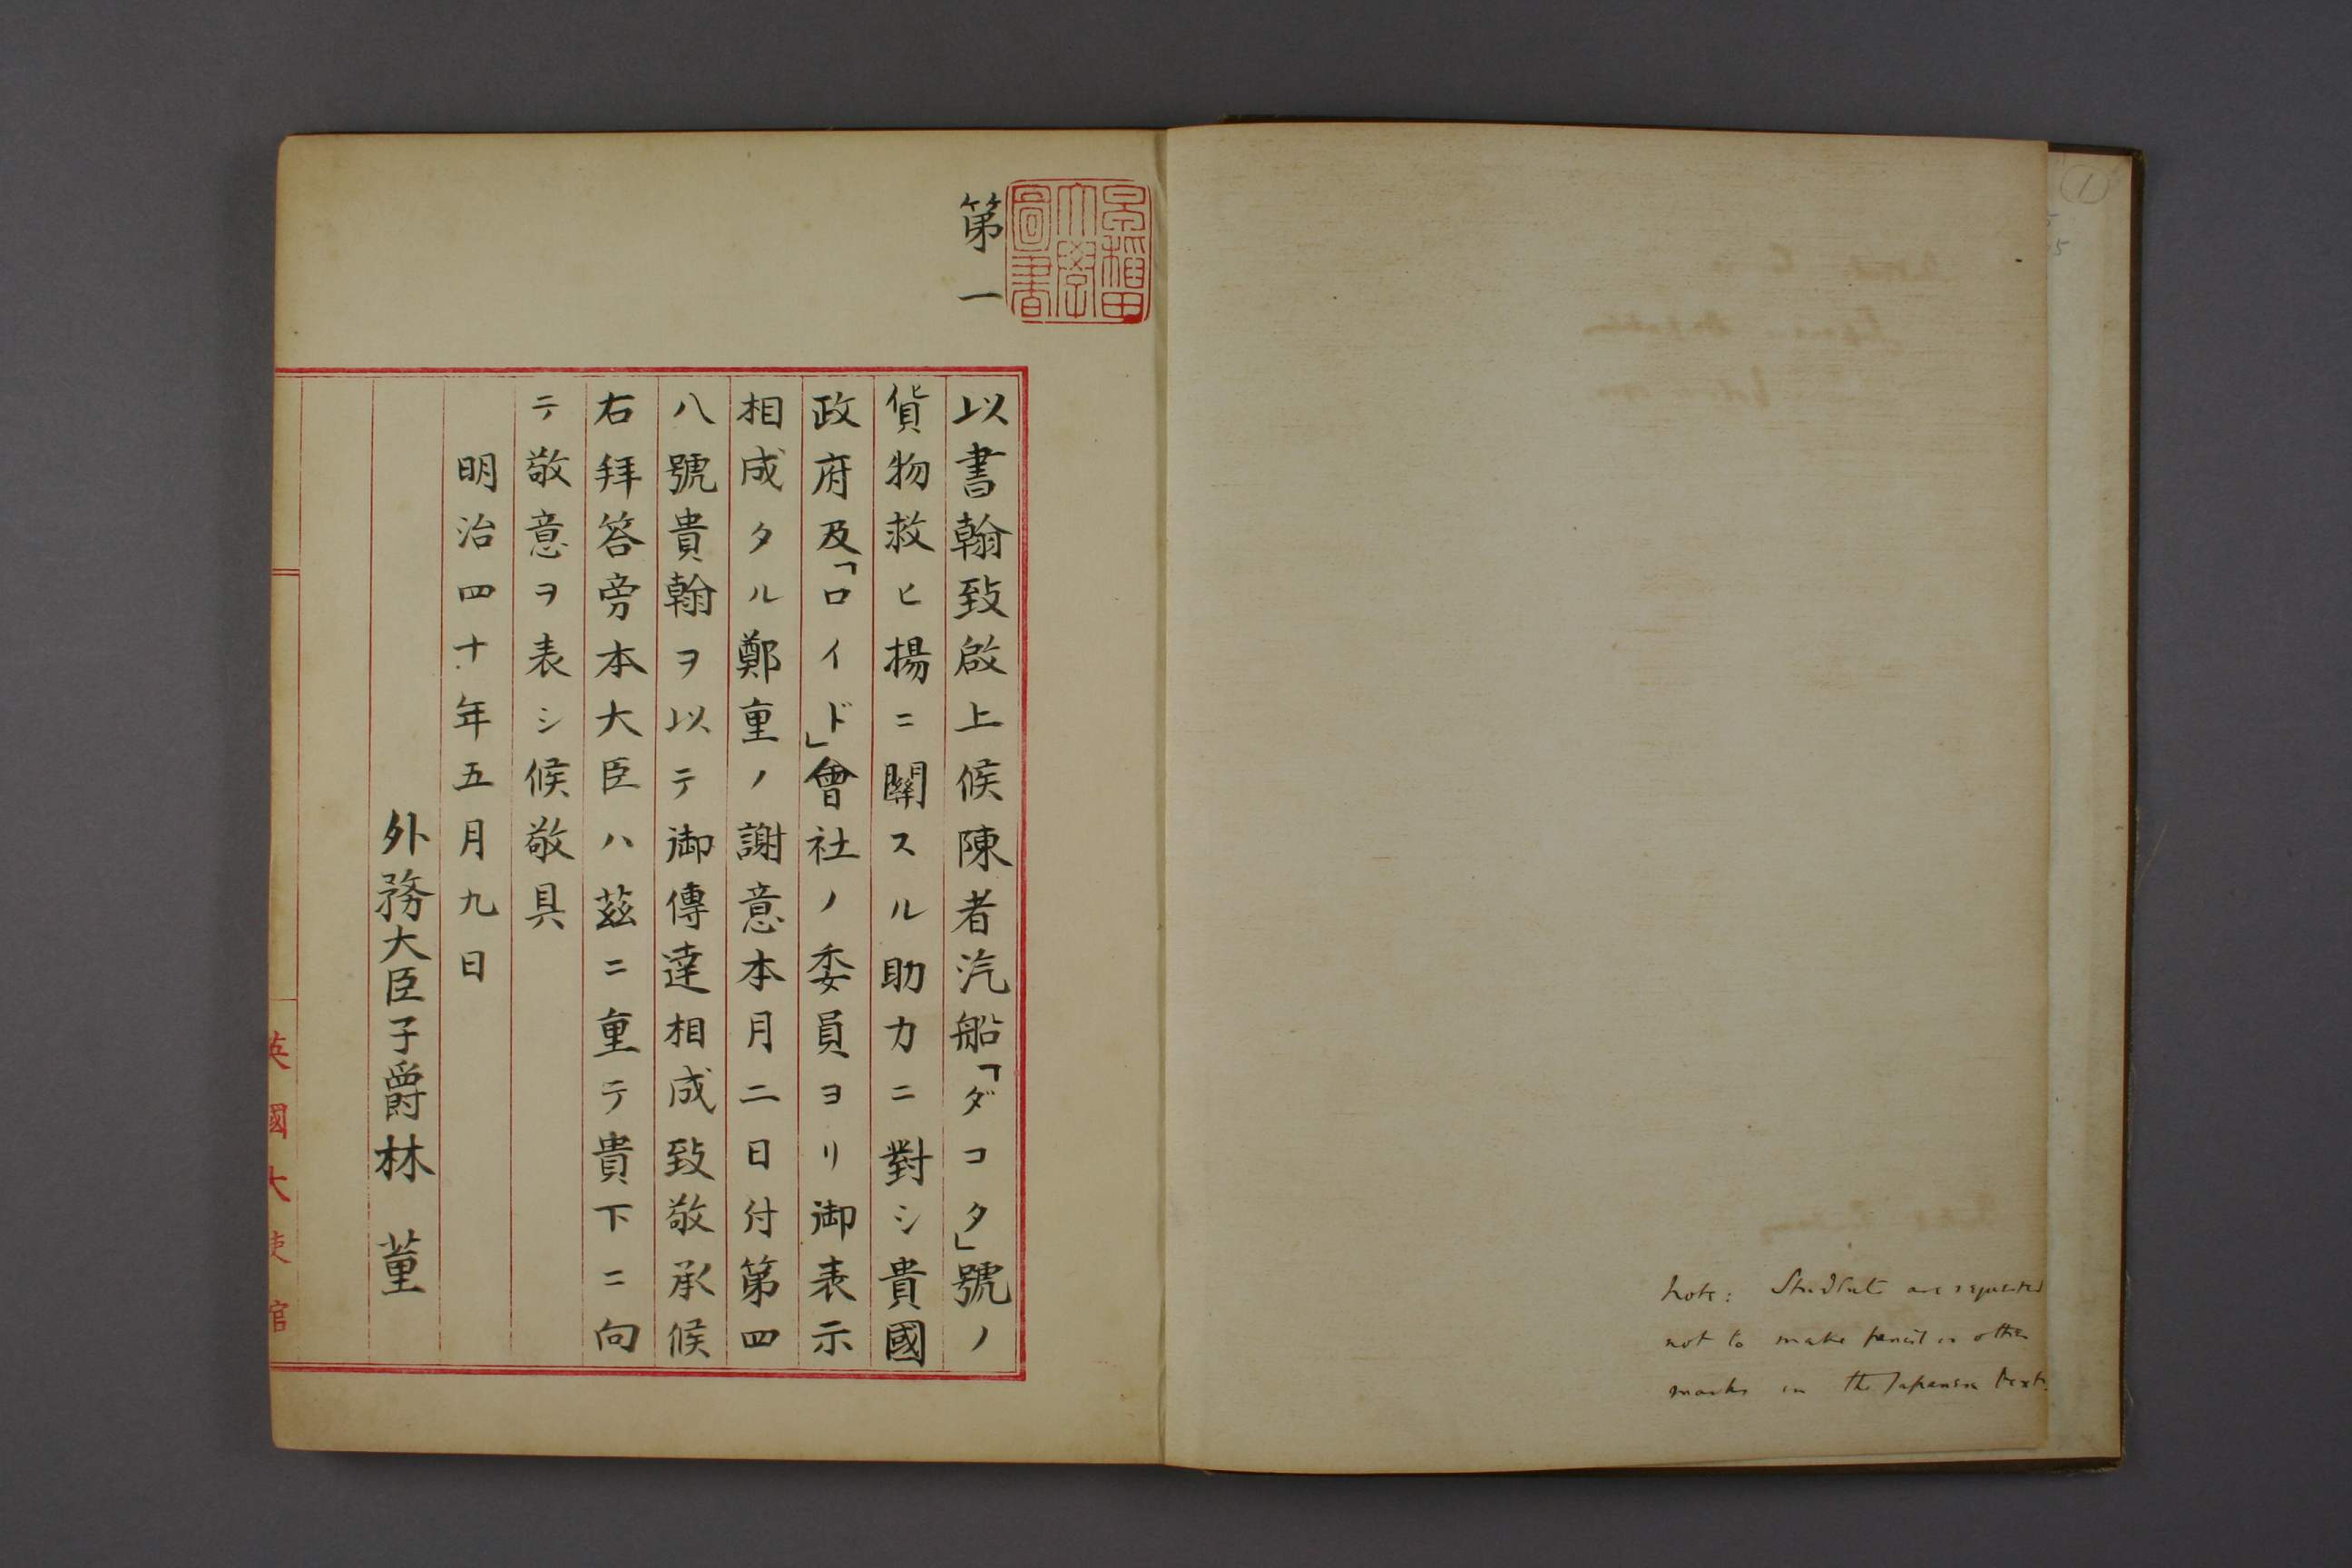 第一
早稲田
大學
圖書
以書翰致啟上候陳者汽船「ダコタ」號ノ
貨物救ヒ揚ニ關スル助力ニ對シ貴國
政府及「ロイド」會社ノ委員ヨリ御表示
相成タル鄭重ノ謝意本月二日付第四
八號貴翰ヲ以テ御傳達相成致敬承候
右拜答旁本大臣ハ茲ニ重テ貴下ニ向
テ敬意ヲ表シ候敬具
明治四十年五月九日
外務大臣子爵林 董
英國大使館
1
Note: Students are requested
not to make pencil or other
marks in the Japanese text.